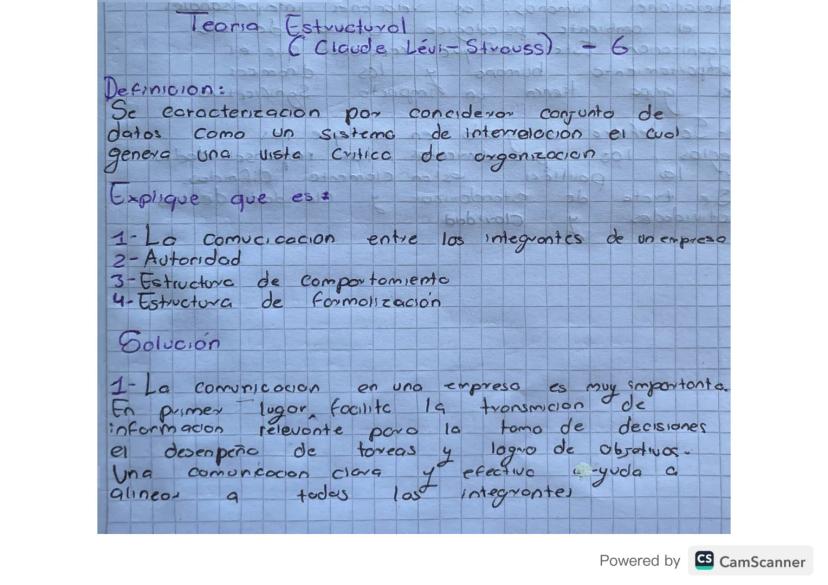 Teoria Estructural
(Claude Lévi-Strauss) - 6
Definicion:
Se caracterizacion por conciderar conjunto de
datos como un sistema de interrelacion el cual
genera una vista critica de organizacion
Explique que es:
1- La comucicacion entre los integrantes de un empresa
2- Autoridad
3- Estructura de comportamiento
4- Estructura de formalización
Solución
1- La comunicacion en una empresa es muy importante.
En primer lugar, facilita la transmicion de
informacion relevante para la toma de decisiones
el desenpeño de tareas y logro de objativos.
Una comuncacion clara y efectiva ayuda a
alinear a todas los integrantes
Powered by CS CamScanner